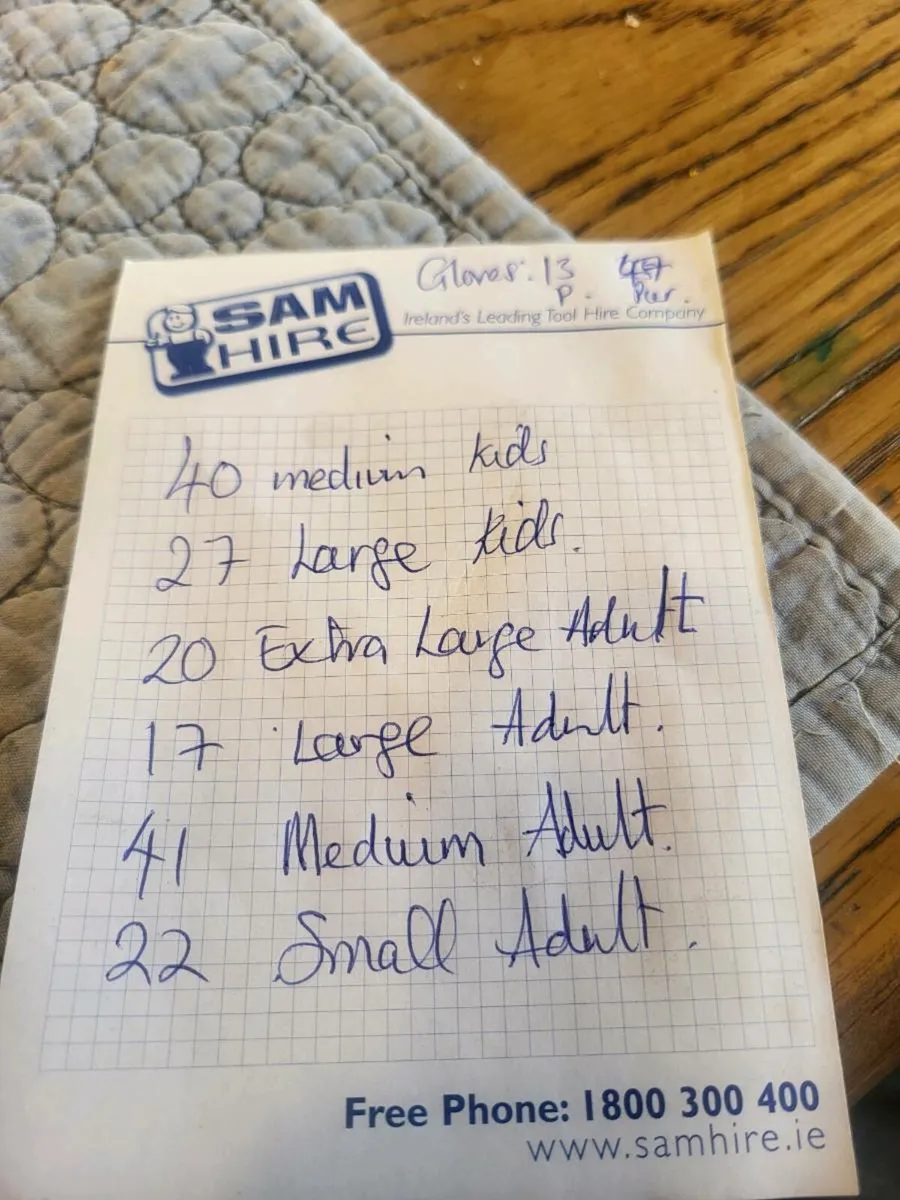 Gloves: 13
P.
SAM
HIRE
Ireland's Leading Tool Hire Company
40 medium kids
27 Large kids.
20 Extra Large Adult
17 Large Adult.
41 Meduim Adult.
22 Small Adult.
Free Phone: 1800 300 400
www.samhire.ie